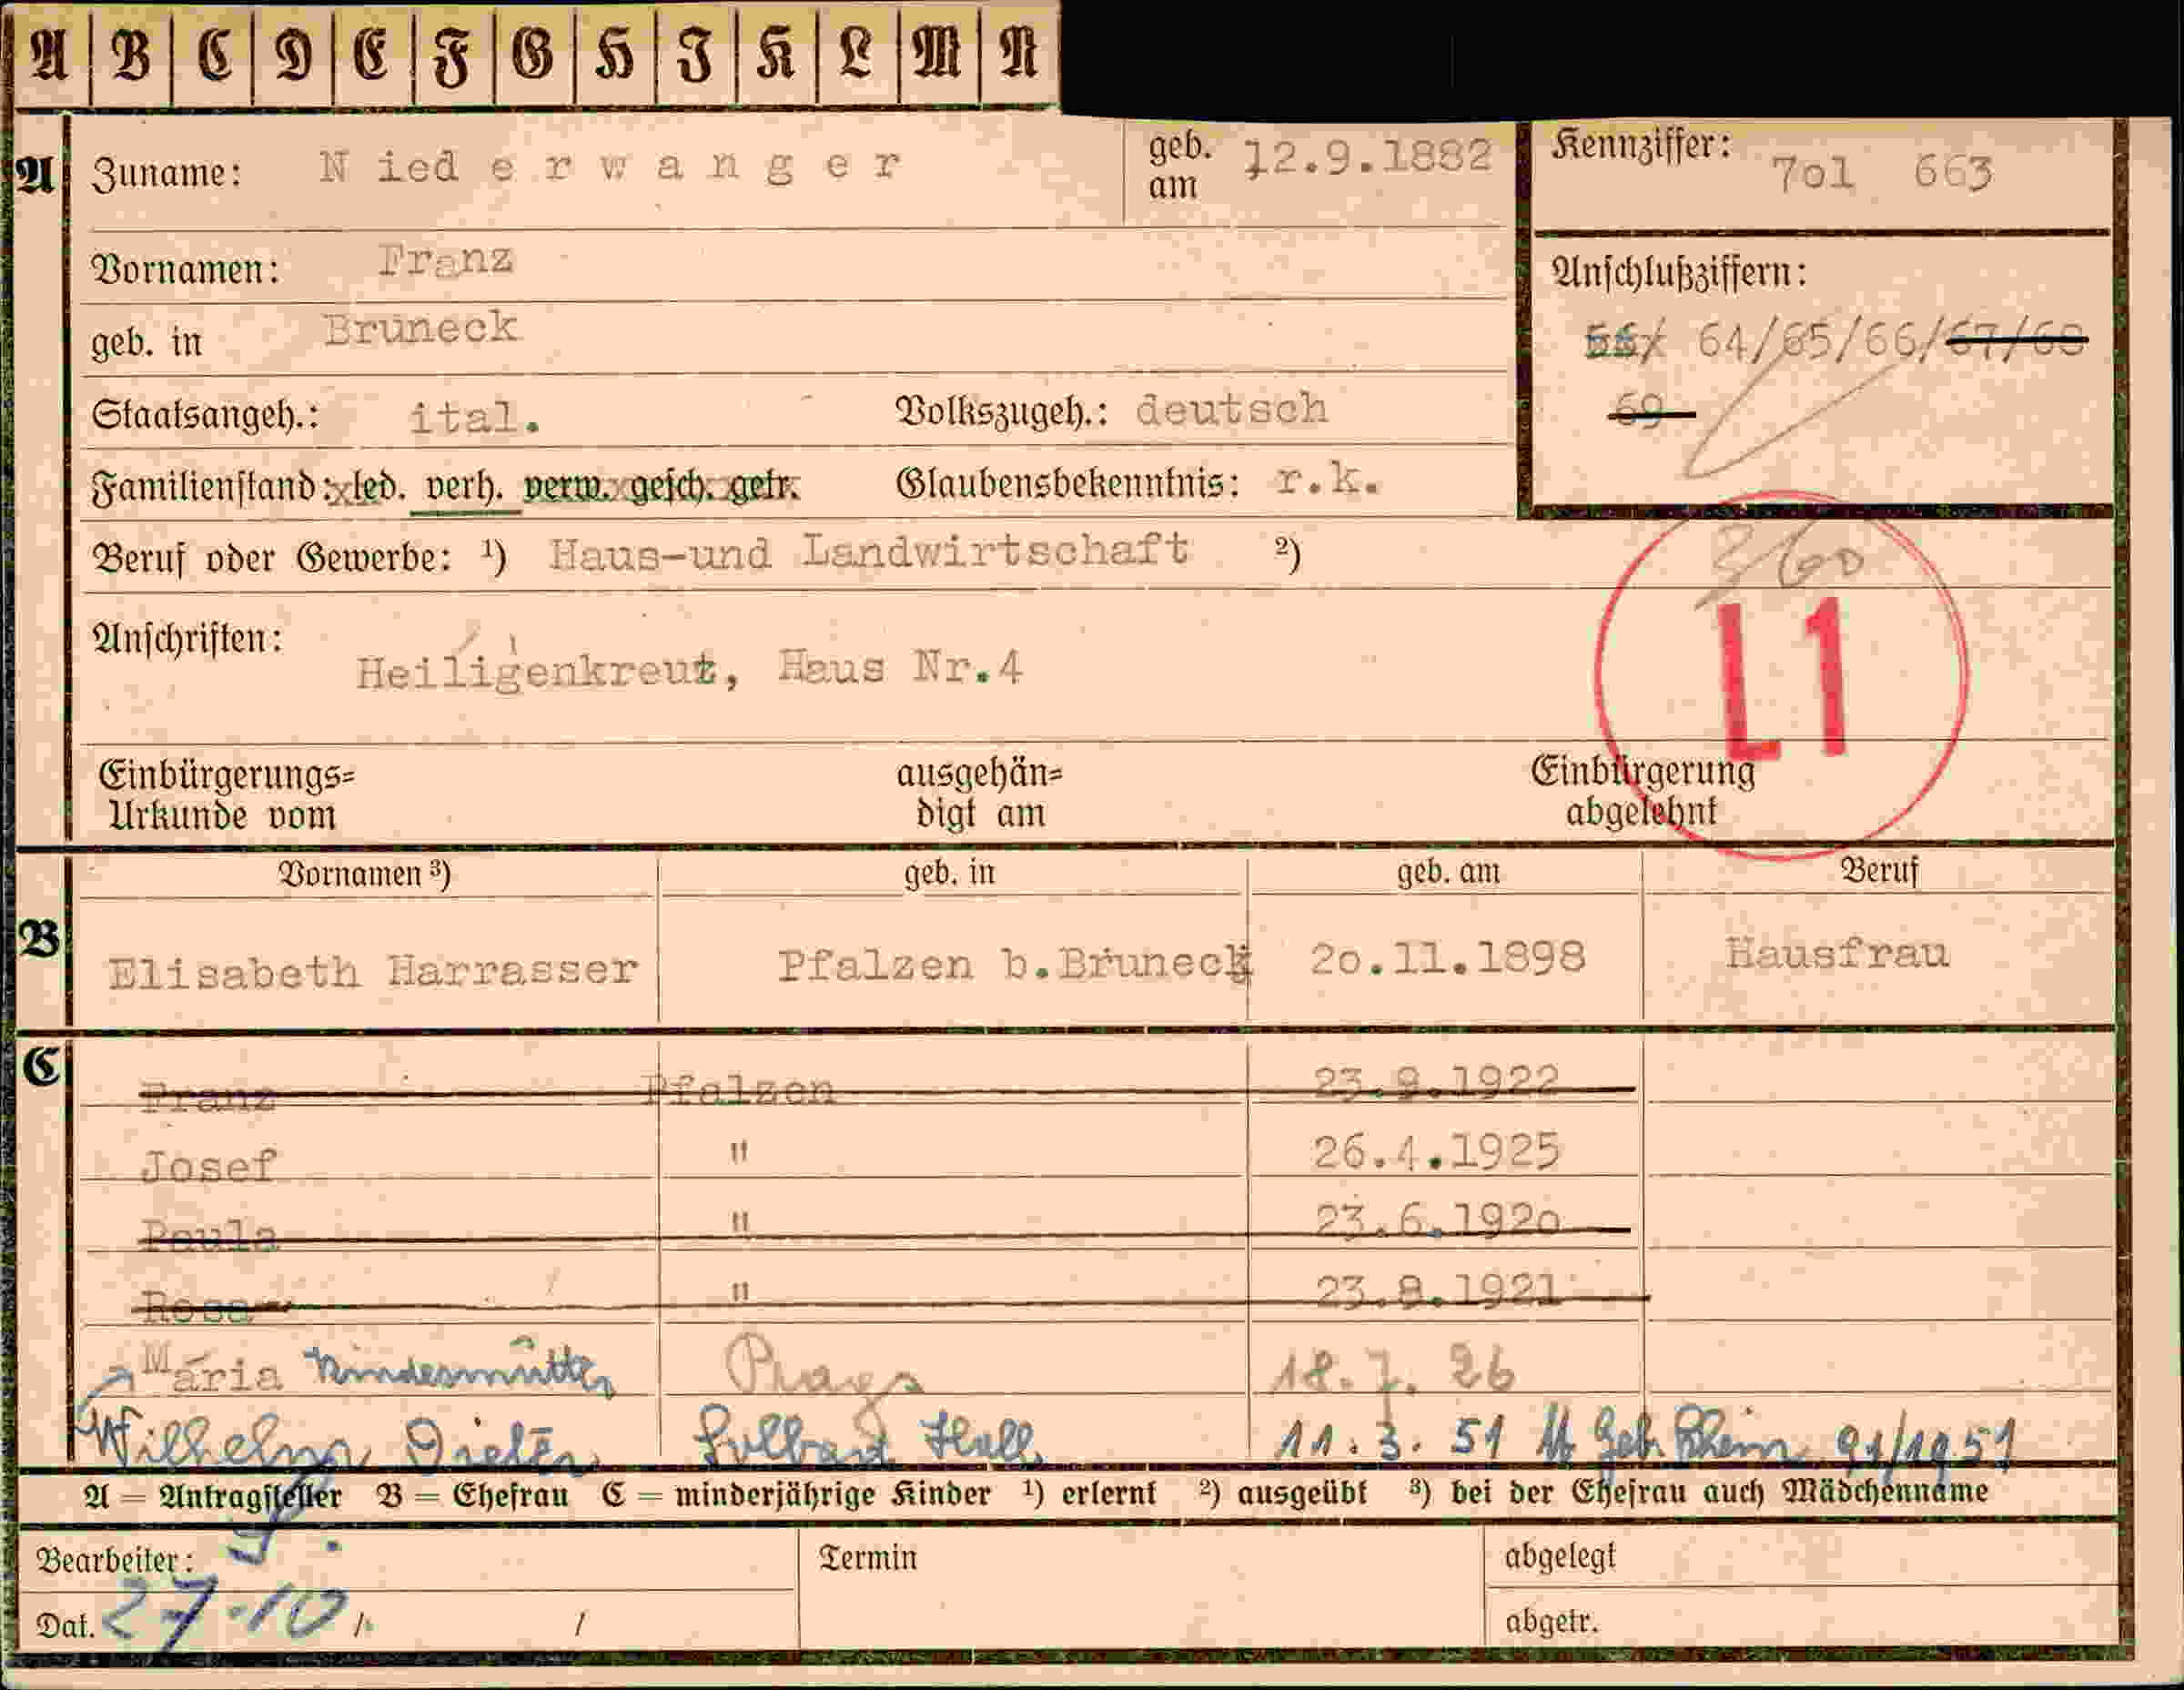 A B C D E F G H I K L M N
A Zuname: Niederwanger geb. am 12.9.1882 Kennziffer: 7o1 663
Vornamen: Franz Anschlußziffern:
geb. in Bruneck 64/65/66/67/68
Staatsangeh.: ital. Volkszugeh.: deutsch 69
Familienstand: led. verh. verw. gesch. getr. Glaubensbekenntnis: r.k.
Beruf oder Gewerbe: ¹) Haus-und Landwirtschaft ²)
Anschriften: L1
Heiligenkreuz, Haus Nr.4
Einbürgerungs= ausgehän= Einbürgerung
Urkunde vom digt am abgelehnt
Vornamen ³) geb. in geb. am Beruf
B Elisabeth Harrasser Pfalzen b.Bruneck 2o.11.1898 Hausfrau
C Franz Pfalzen 23.9.1922
Josef " 26.4.1925
Paula " 23.6.192o
Rosa " 23.8.1921
Maria Kindesmutter Prags 18.7.26
Wilhelm Dieter Solbad Hall 11.3.51 Geb. 91/1951
A = Antragsteller B = Ehefrau C = minderjährige Kinder ¹) erlernt ²) ausgeübt ³) bei der Ehefrau auch Mädchenname
Bearbeiter: Termin abgelegt
Dat. 27.10 / / abgetr.